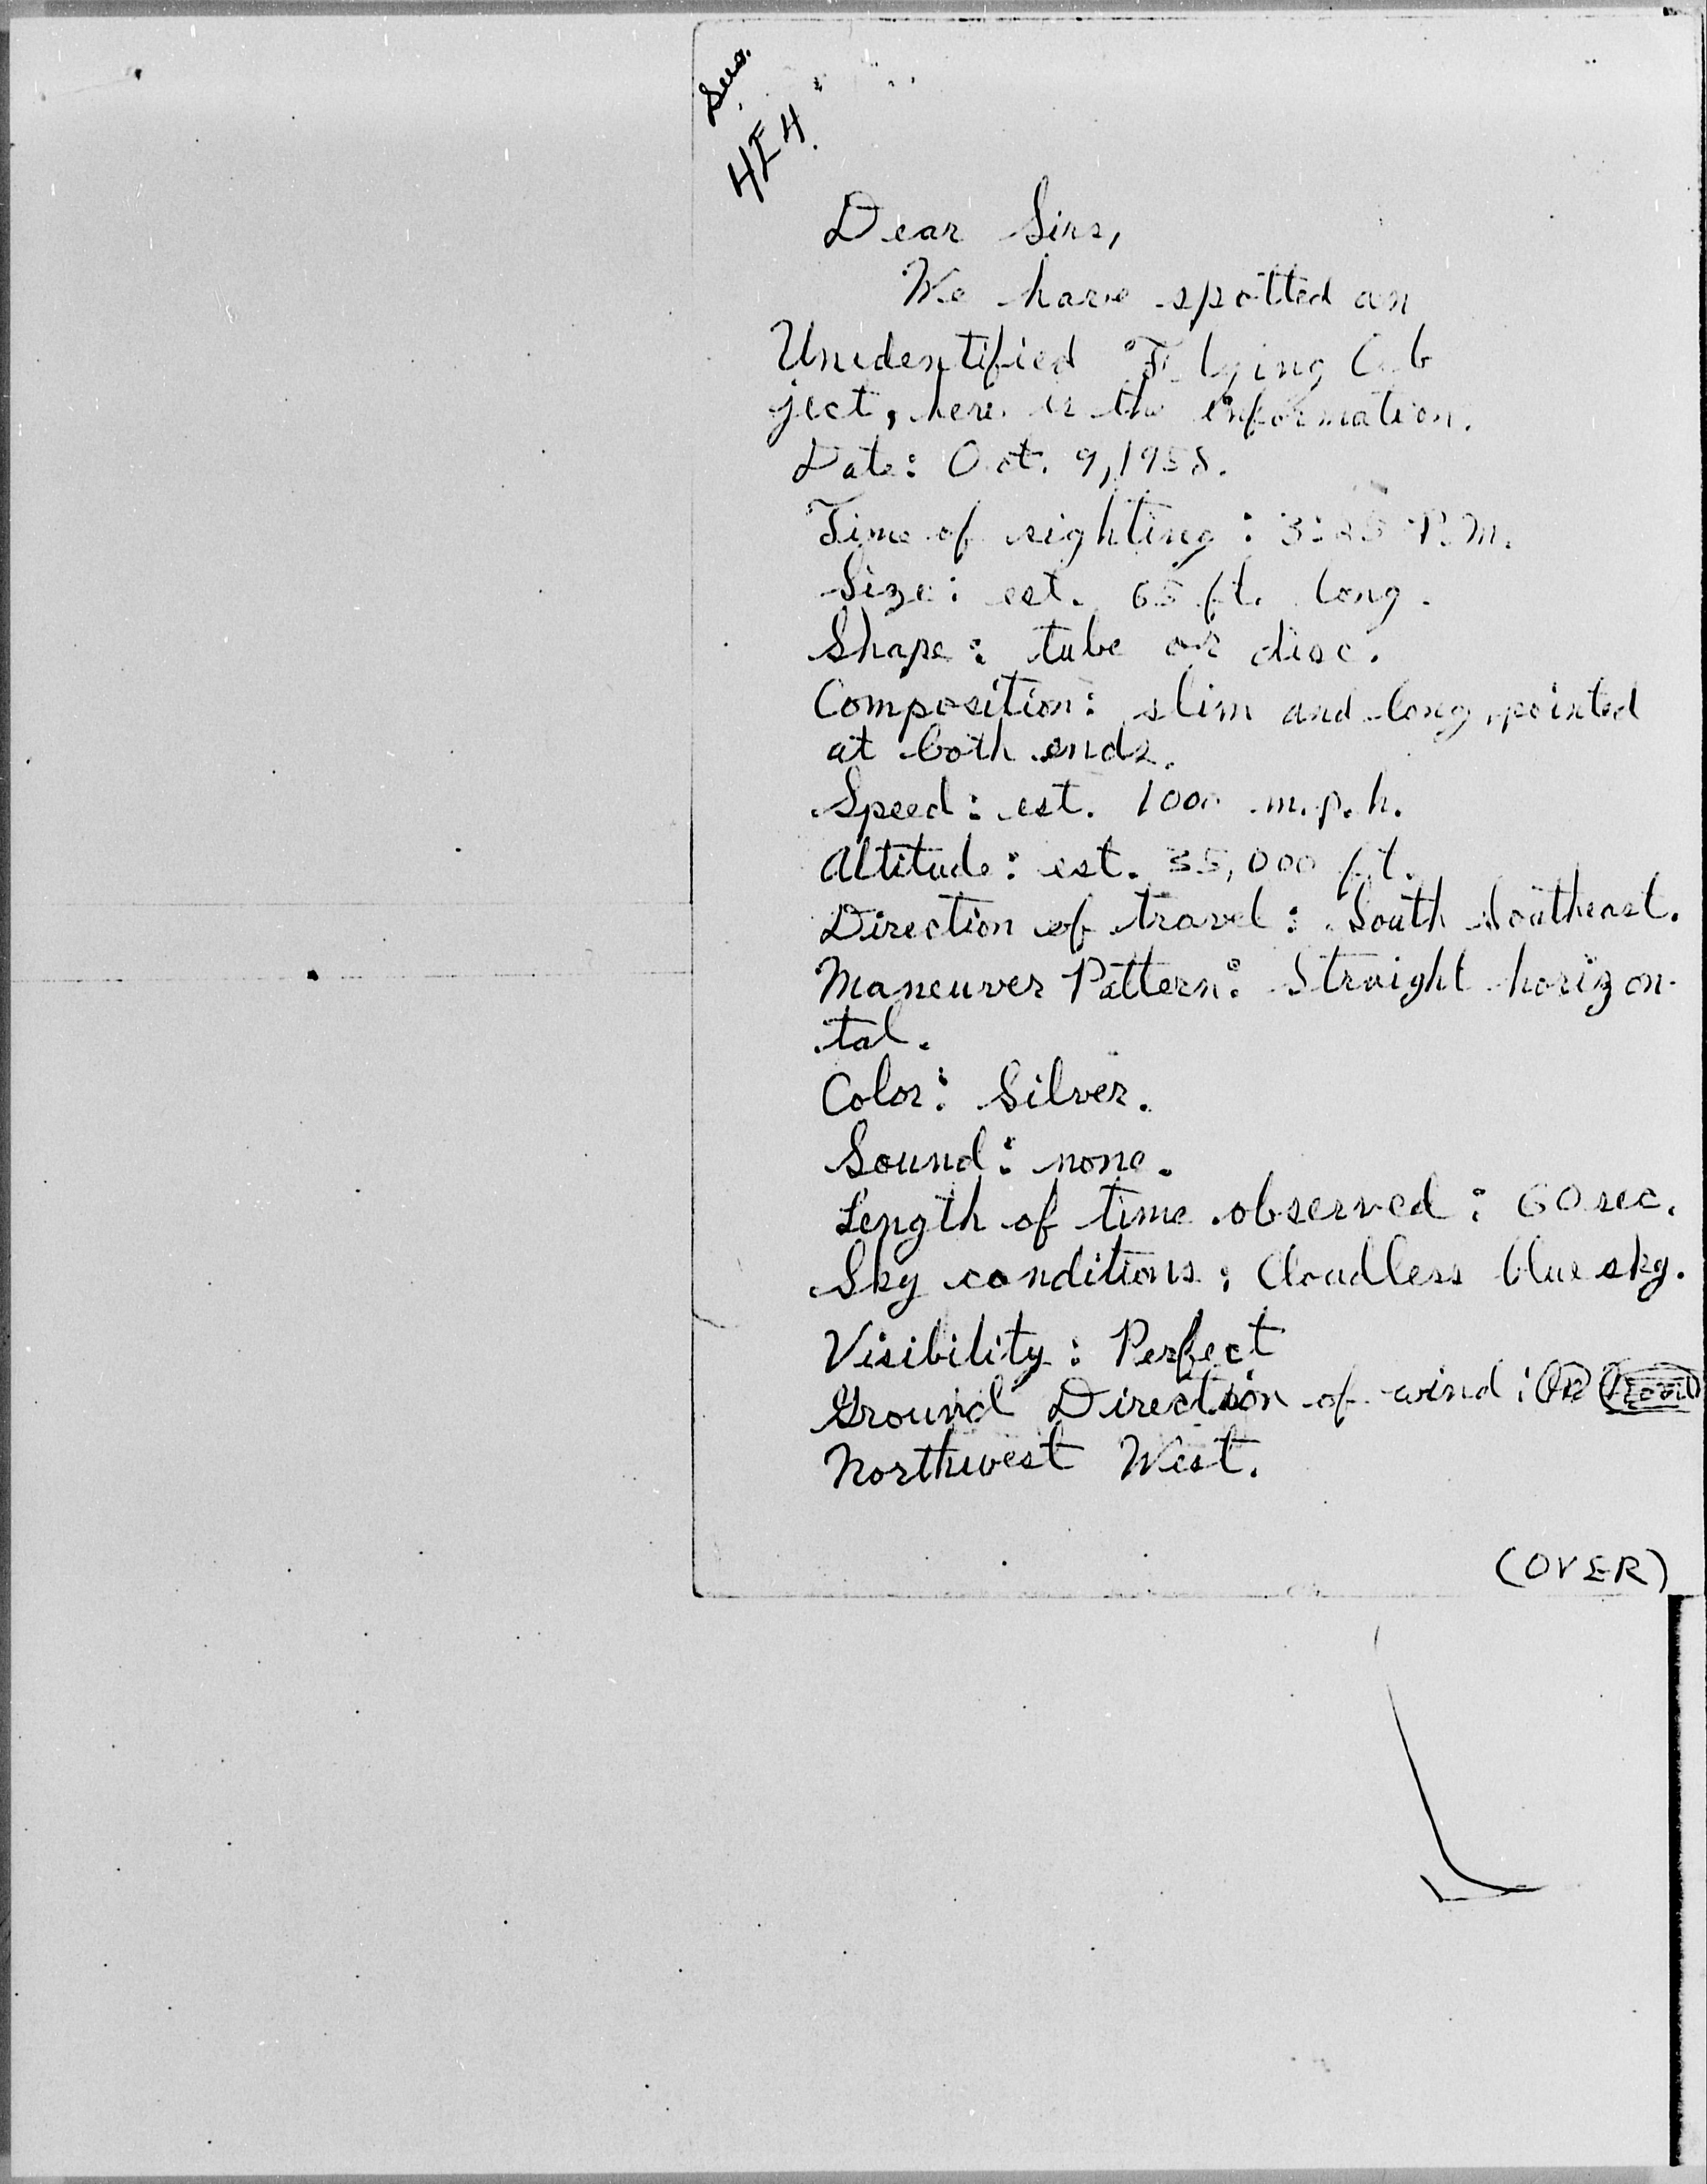 4E4.
Dear Sirs,
We have spotted an
Unidentified Flying Ob
ject, here is the information.
Date: Oct. 9, 1958.
Time of sighting: 3:25 P.M.
Size: est. 65 ft. long.
Shape: tube or disc.
Composition: slim and long, pointed
at both ends.
Speed: est. 1000 m.p.h.
Altitude: est. 35,000 ft.
Direction of travel: South Southeast.
Maneuver Pattern: Straight horizon-
tal.
Color: Silver.
Sound: none.
Length of time observed: 60 sec.
Sky conditions: Cloudless blue sky.
Visibility: Perfect
Ground Direction of wind:
Northwest West.
(OVER)